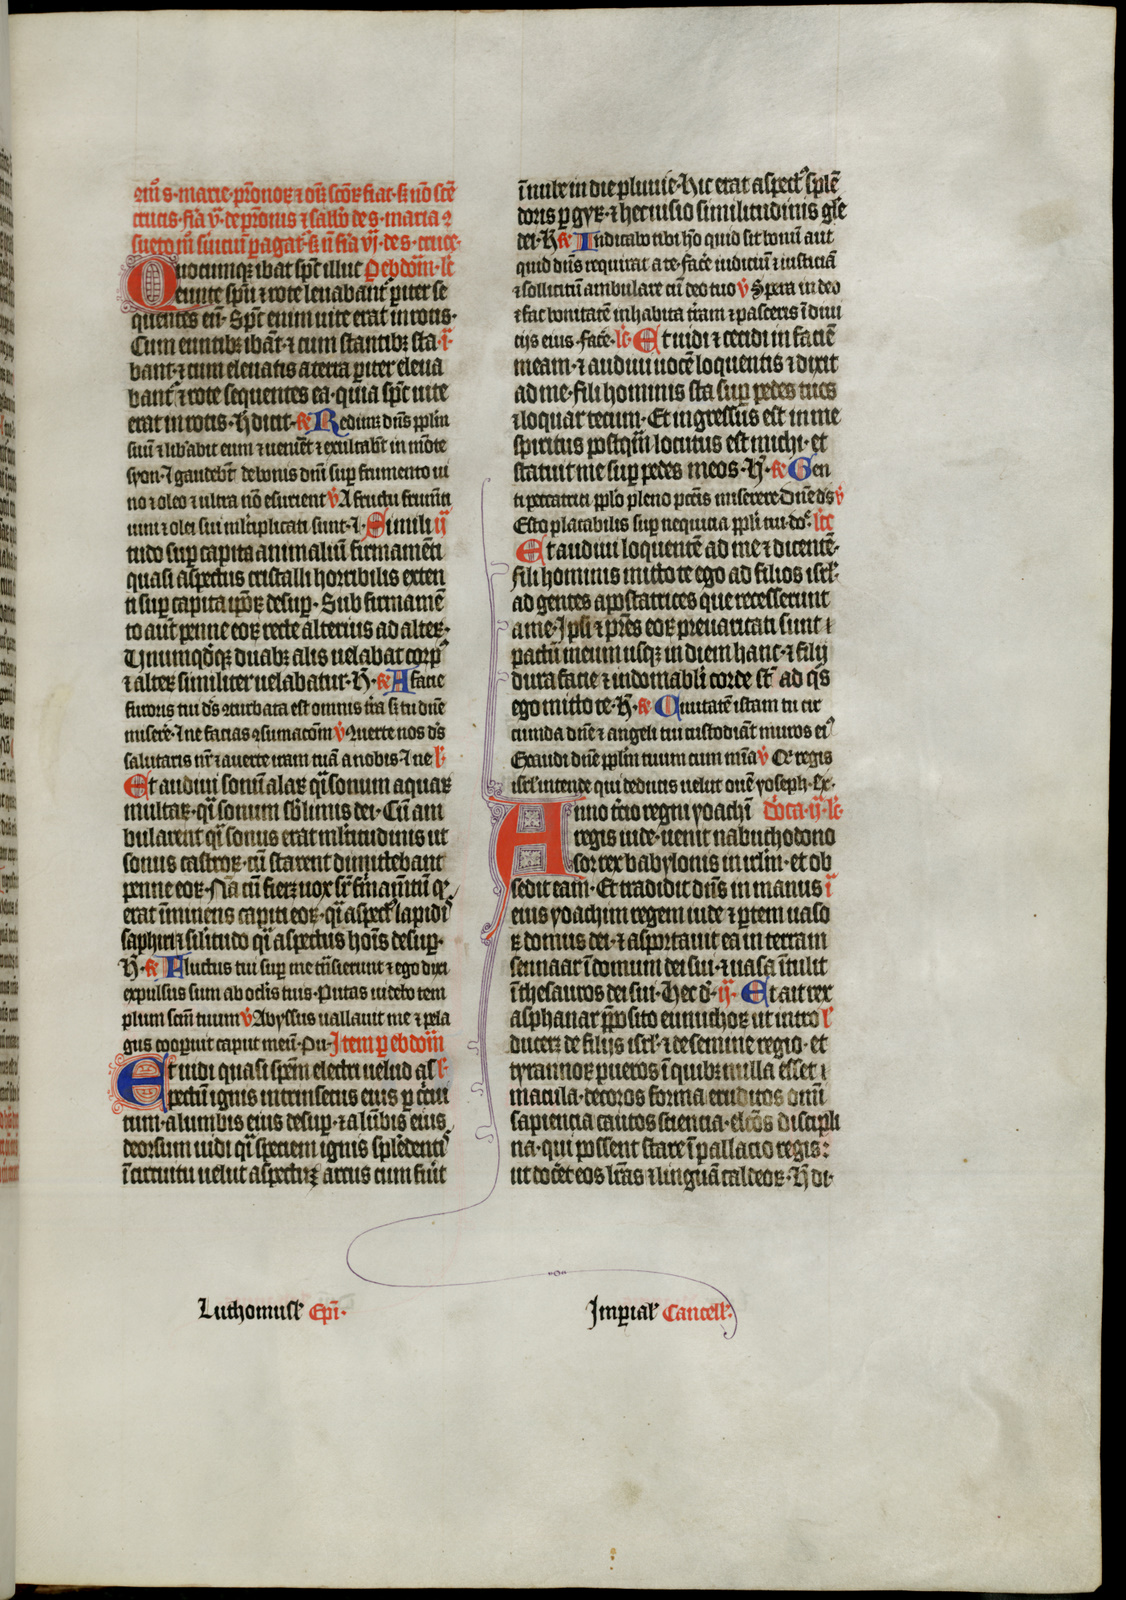 mũ s. marie pr̃onor̃ et oĩm scõr̃ fiat. s; nõ scẽ
crucis. fiã v̊. de pr̃onis et sabbõ de s. maria
sueto mõ
Quocumqꝫ ibat spc̃ illuc ebdom̃. lc̃
eunte spũ ⁊ rote leuabant᷑ ꝑiter se
quentes eũ. Spc̃ enim uite erat in rotis.
Cum euntibꝫ ibãt. ⁊ cum stantibꝫ sta
bant. ⁊ cum eleuatis a terra ꝑiter eleua
bant᷑ ⁊ rote sequentes ea. quia spc̃ uite
erat in rotis. H̃ dicit. R̃ Redimet dñs ppl̃m
suũ ⁊ lib̾abit eum ⁊ uenient ⁊ exultabt̃ in mõte
syon. ⁊ gaudebt̃ de bonis dñi suꝑ frumento ui
no ⁊ oleo ⁊ ultra nõ esurient v̊ A fructu frum̃ti
uini ⁊ olei sui ml̃tiplicati sunt. ⁊. Simili ij
tudo suꝑ capita animaliũ firmamẽti
quasi aspectus cristalli horribilis exten
ti suꝑ capita ip̃oꝝ desuꝑ. Sub firmamẽ
to aut̃ penne eoꝝ recte alterius ad alteꝝ.
Unumqd̾qꝫ duabꝫ alis uelabat corpꝰ
⁊ alteꝝ similiter uelabatur. H̃. R̃ A facie
furoris tui d̾s ꝯturbata est omnis tr̃a sꝫ tu dñe
misere᷑. ⁊ ne facias ꝯsumac̃om̃ v̊ ꝯuerte nos d̾s
salutaris nr̃ ⁊ auerte iram tuã a nobis. ⁊ ne l̾
Et audiui sonũ alaꝝ qͣsi sonum aquaꝝ
multaꝝ. qͣsi sonum sb̾limis dei. Cũ am
bularent qͣsi sonus erat ml̃titudinis ut
sonus castroꝝ. cũ starent dimittebant᷑
penne eoꝝ. Nã cũ fieret uox suꝑ firmam̃tũ qͩ
erat ĩminens capiti eoꝝ. qͣsi aspectꝰ lapidis
saphiri ⁊ sil̾itudo qͣsi aspectus hoĩs desuꝑ.
H̃. R̃ Fluctus tui suꝑ me trãsierunt ⁊ ego dixi
expulsus sum ab oc̃lis tuis. Putas uidebo tem
plum scm̃ tuum v̊ Abyssus uallauit me ⁊ pela
gus cooꝑuit caput meũ. Pu. Item ꝑ ebdom̃
Et uidi quasi spem̃ electri uelud as l̾
pectũ ignis intrinsecus eius ꝑ circui
tum. a lumbis eius desuꝑ. ⁊ a lũbis eius
deorsum uidi qͣsi speciem ignis splẽdentis
ĩ circuitu uelut aspectũ arcus cum fu̾it
ĩ nube in die pluuie. Hic erat aspectꝰ splẽ
doris ꝑ gyꝝ. ⁊ hec uisio similitudinis gl̃e
dei. H̃ R̃ Indicabo tibi hõ quid sit bonũ aut
quid dñs requirat a te. fac̾e iudiciũ ⁊ iusticiã
⁊ sollicitũ ambulare cũ deo tuo v̊ Spera in deo
⁊ fac bonitatẽ inhabita tr̃am ⁊ pasceris ĩ diui
cijs eius. fac̾e. lc̃. Et uidi ⁊ cecidi in faciẽ
meam. ⁊ audiui uocẽ loquentis ⁊ dixit
ad me. fili hominis sta suꝑ pedes tuos
⁊ loquar tecum. Et ingressus est in me
spiritus postqͣm locutus est michi. et
statuit me suꝑ pedes meos. H̃. R̃ Gen
ti peccatrici ppl̃o pleno pctĩs miserere dñe d̾s v̊
Esto placabilis suꝑ nequitia ppl̃i tui. do. lcĩo
Et audiui loquentẽ ad me ⁊ dicentẽ.
fili hominis mitto te ego ad filios isrl̃.
ad gentes apostatrices que recesserunt
a me. Ipsi ⁊ pr̃es eoꝝ preuaricati sunt
pactũ meum usqꝫ in diem hanc. ⁊ filij
dura facie ⁊ indomabil̾i corde st̃. ad qͦs
ego mitto te. H̃. R̃ Ciuitatẽ istam tu cir
cumda dñe ⁊ angeli tui custodiãt muros eiꝰ
Exaudi dñe ppl̃m tuum cum mĩa v̊ Qͥ regis
isrl̃ intende qui deducis uelut ouẽ yoseph. Ex.
Anno tc̾io regni yoachĩ dõca. ij. lc̃.
regis iude. uenit nabuchodono
sor rex babylonis in irl̃m. et ob
sedit eam. Et tradidit dñs in manus i
eius yoachim regem iude ⁊ ꝑtem uaso
ꝝ domus dei. ⁊ asportauit ea in terram
sennaar ĩ domum dei sui. ⁊ uasa ĩtulit
ĩ thesauros dei sui. Hec d̾. ij. Et ait rex
asphanaz p̃posito eunuchoꝝ ut intro l̾
duceꝝ de filijs isrl̃. ⁊ de semine regio. et
tyrannoꝝ pueros ĩ quibꝫ nulla esset
macula. decoros forma eruditos omĩ
sapiencia cautos sciencia. et doctos discipli
na. qui possent stare ĩ pallacio regis
ut doc̾et eos lr̃as ⁊ linguã caldeoꝝ. H̃ di.
Luthomusł Ep̃i. Imꝑialꝭ Cancellꝭ.